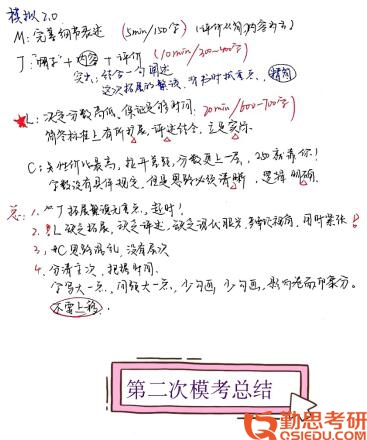 模拟2.0
M：完善细节表述 (5min/150字) (评价从简,内容为主)
J："帽子" + 内容 + 评价 (10min/300~400字)
突出,结合一句阐述
这次拓展的繁琐, 抓重点、精简
L：决定分数高低,保证足够时间：20min/600-700字
简答标准上有所扩展,评述结合,立足实际
C：性价比最高,拉开差距,分数更上一层,250就靠你！
字数没有具体规定,但是思路必须清晰,逻辑明确.
总：1. J拓展繁琐无重点,超时！
2. L缺乏拓展,缺乏评述,缺乏说服 用时紧张！
3, C思路混乱,没有层次
4. 分清主次,把握时间.
字写大一点,间距大一点,少勾画,少勾画,影响卷面印象分.
不需上移.
第二次模考总结
勤思考研
QSIEDU.COM